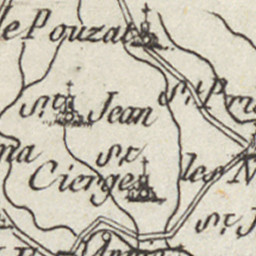 le Pouzat
St. Jean
St. Pri
St.
Cierge
les N
St. J